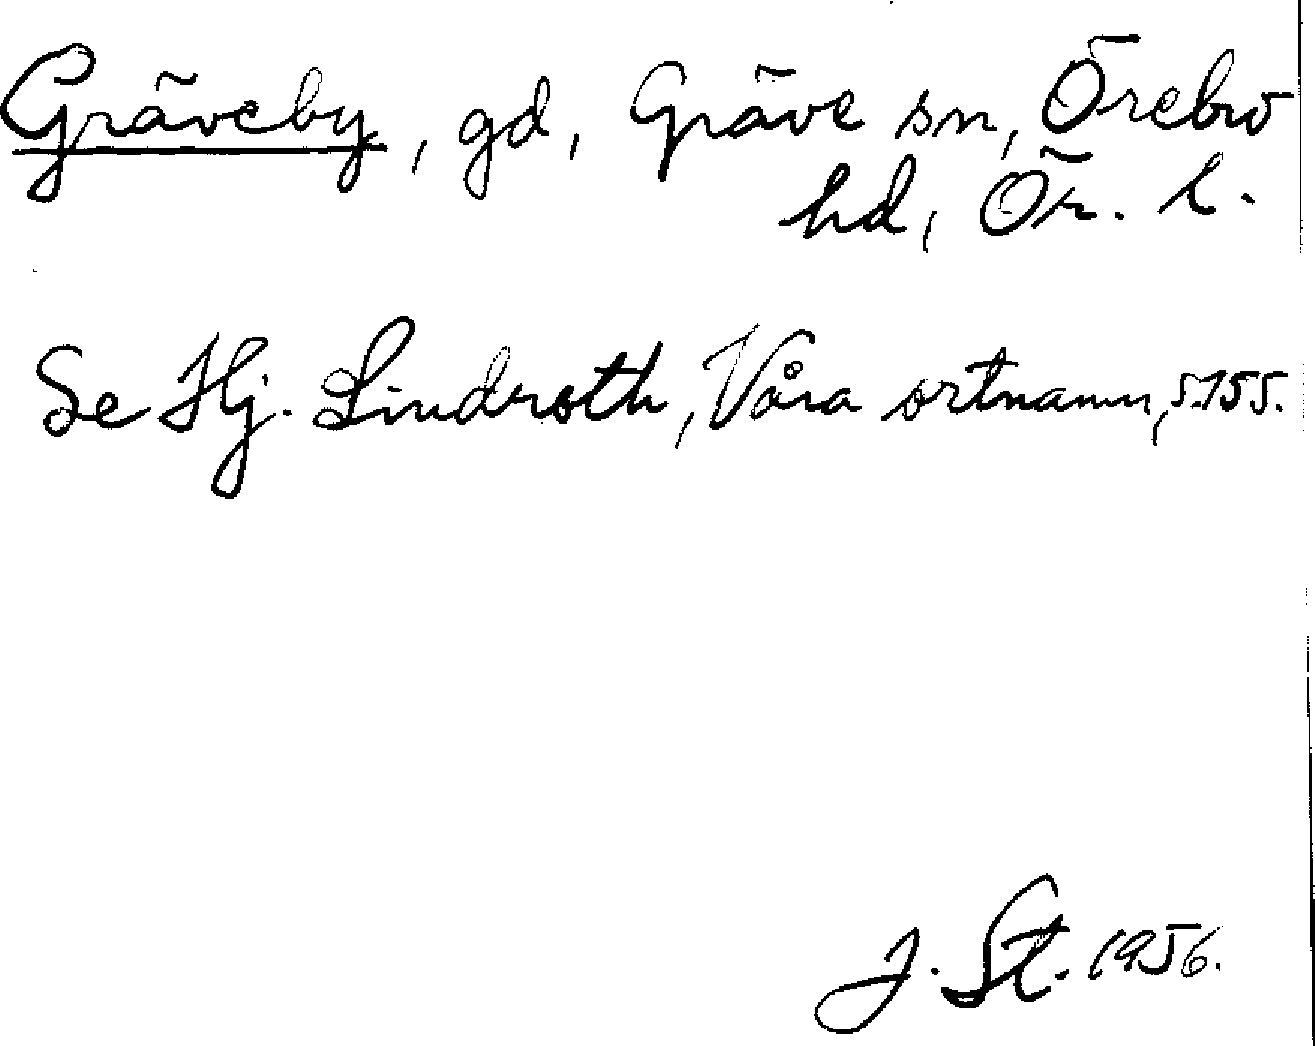 Gräveby, gd, Gräve sn, Örebro
hd, Ör. l.
Se Hj. Lindroth, Våra ortnamn, s.155.
J. St. 1956.